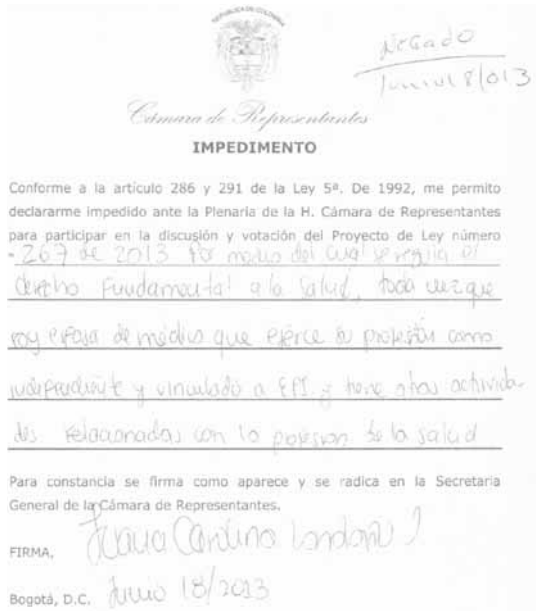 REPUBLICA DE COLOMBIA
Negado
Junio 18/013
Cámara de Representantes
IMPEDIMENTO
Conforme a la artículo 286 y 291 de la Ley 5ª. De 1992, me permito
declararme impedido ante la Plenaria de la H. Cámara de Representantes
para participar en la discusión y votación del Proyecto de Ley número
- 267 de 2013 Por medio del cual se regula el
derecho Fundamental a la Salud, toda vez que
soy esposa de médico que ejerce su profesión como
independiente y vinculado a EPS y tiene otras activida-
des relacionadas con la profesión de la salud
Para constancia se firma como aparece y se radica en la Secretaria
General de la Cámara de Representantes.
FIRMA, Carolina Londoño
Bogotá, D.C. Junio 18/2013